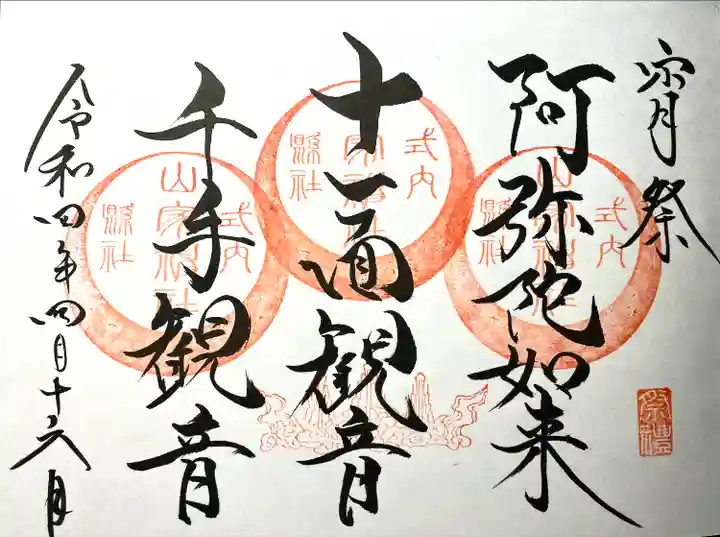 宵月祭
阿弥陀如来
十一面観音
千手観音
令和四年四月十六日
式内
山家神社
縣社
式内
山家神社
縣社
式内
山家神社
縣社
祭禮